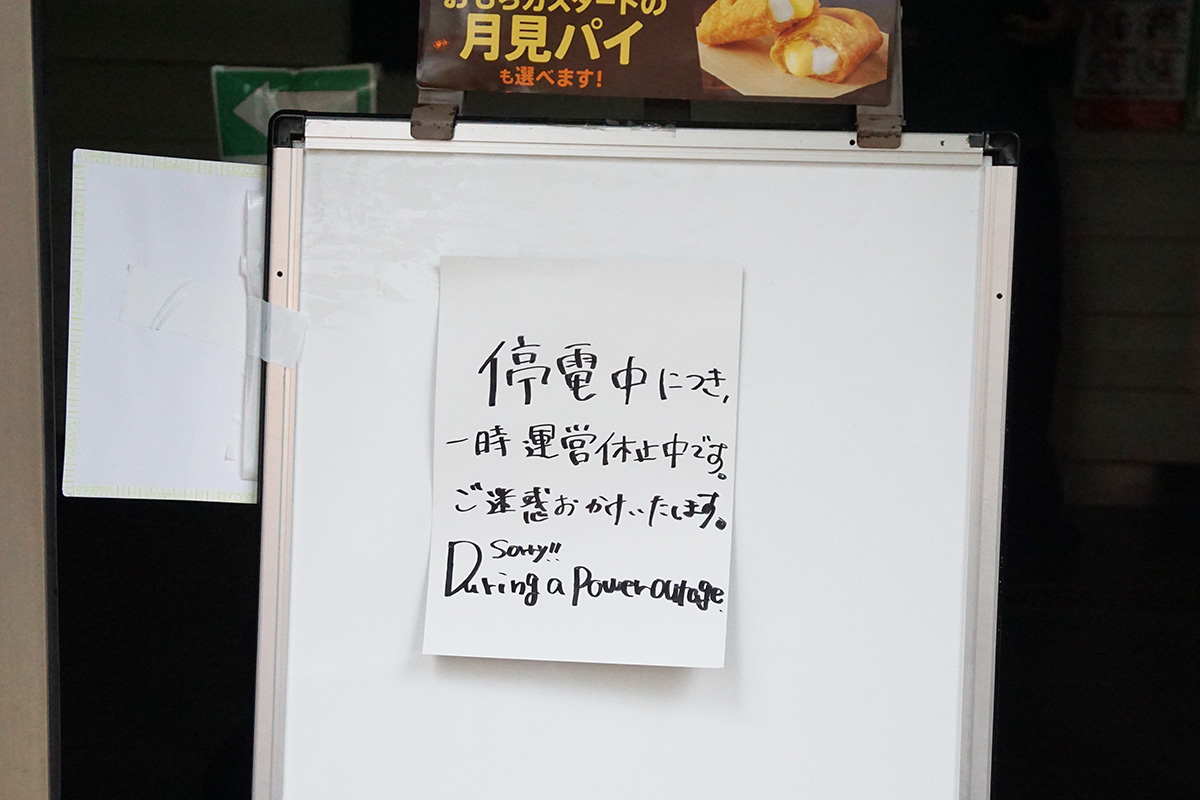 おもちカスタードの
月見パイ
も選べます!
停電中につき,
一時運営休止中です。
ご迷惑おかけいたします。
Sorry!!
During a power outage.